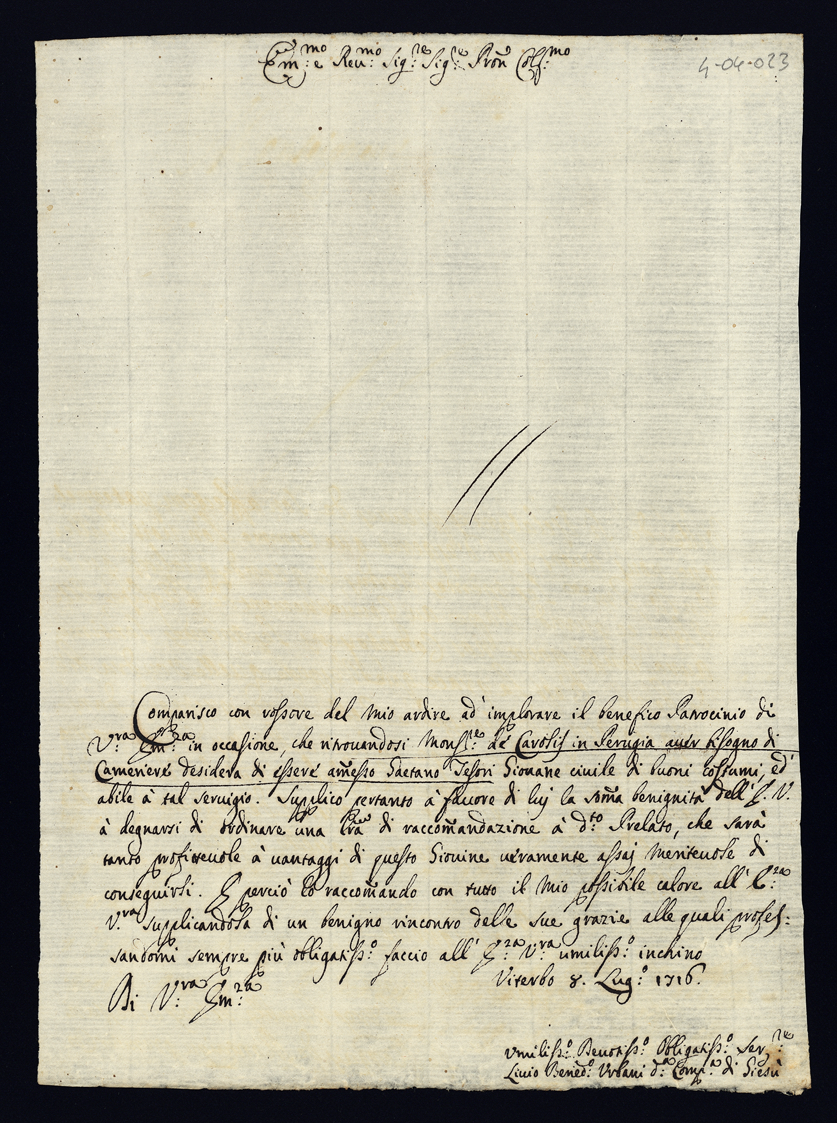 Em:mo e Reu:mo Sig:re Sig:re Pron Col:mo
4-04-023
Comparisco con rossore del mio ardire ad implorare il benefico Patrocinio di
V:ra Em:za in occasione, che ritrouandosi Mons:re de Carolis in Perugia auer bisogno di
Camerieré desidera di esseré amesso Gaetano Tesori Giouane ciuile di buoni costumi, ed
abile à tal seruigio. Supplico pertanto à fauore di luj la soma benignità dell' E. V.
à degnarsi di ordinare una lra di raccomandazione à d:to Prelato, che sarà
tanto profitteuole à uantaggi di questo Giouine ueramente assaj meriteuole di
conseguirsi. E perciò lo raccomando con tutto il mio possibile calore all' E:za
V:ra supplicandola di un benigno rincontro delle sue grazie alle quali profes:
sandomi sempre più obligatiss:o faccio all' E:za V:ra umiliss:o inchino
Di V:ra Em:za
Viterbo 8. Lug:o 1716.
Umiliss:o Deuotiss:o Obligatiss:o Ser:re
Liuio Bened:o Urbani d:a Comp:a di Giesù